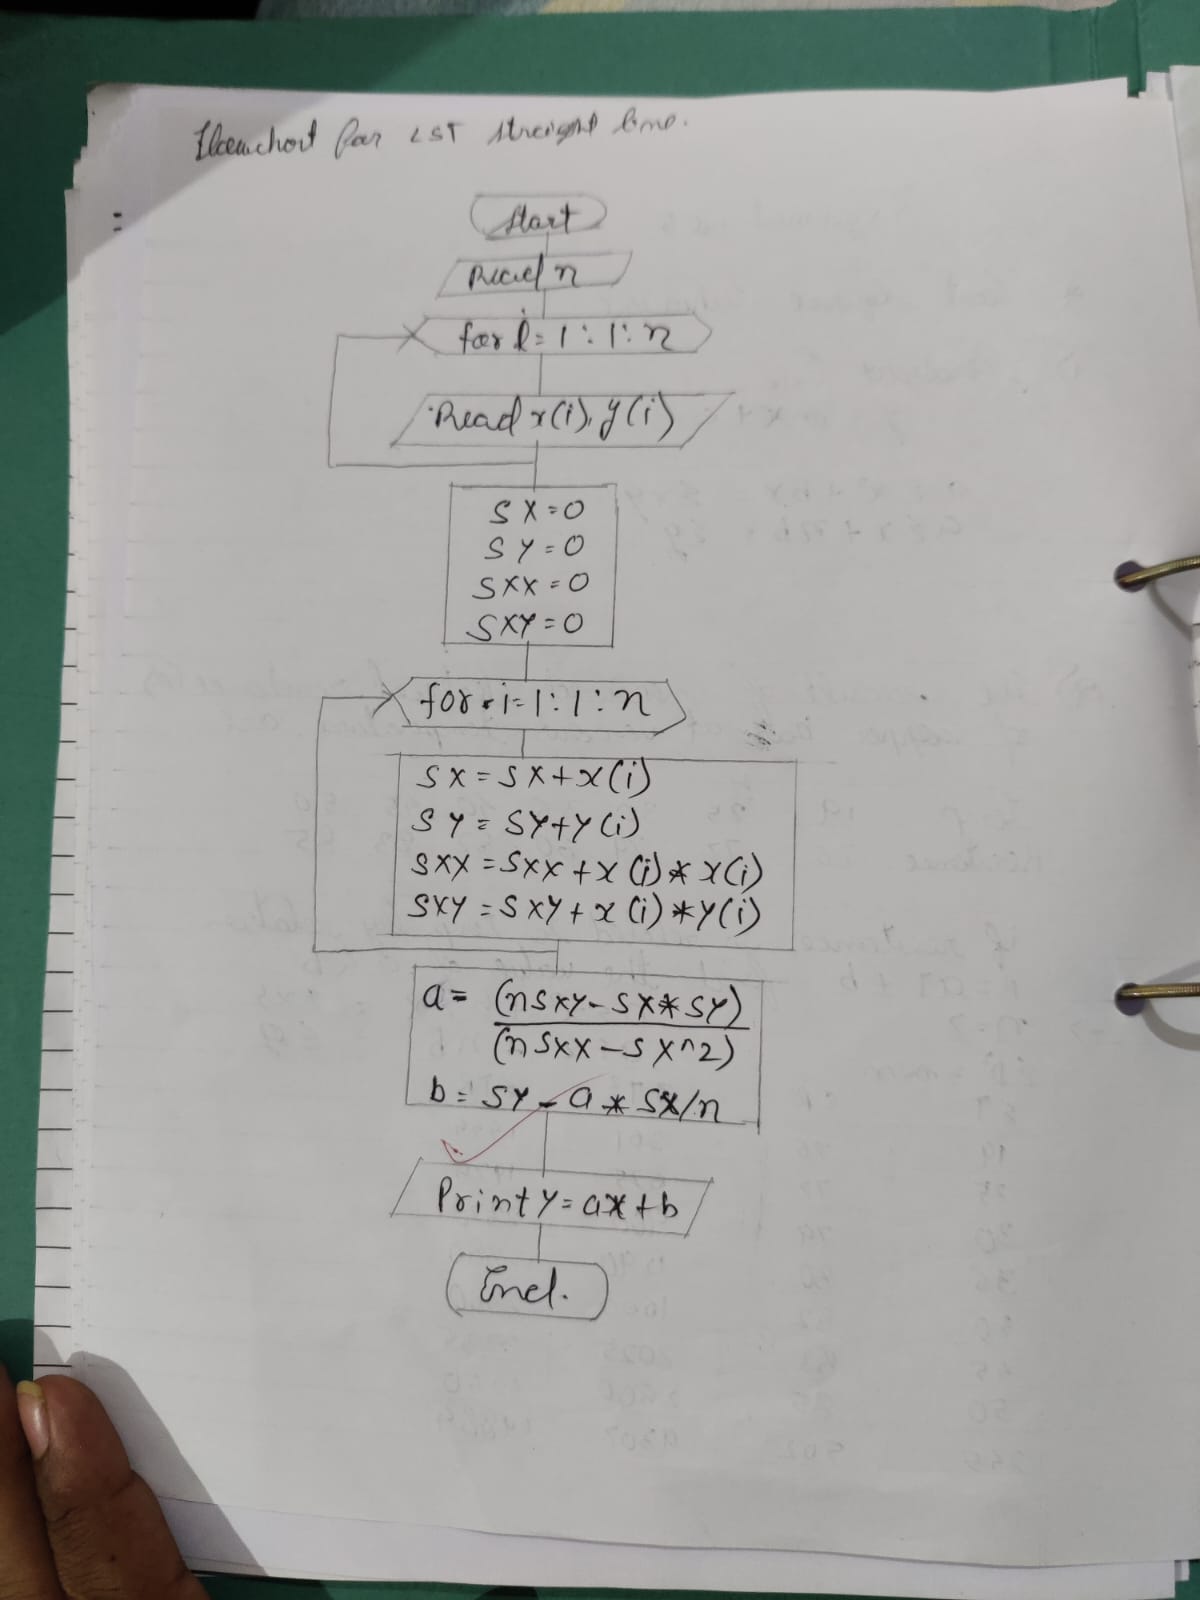 Flowchart for LST streight line.
Start
Read n
for i = 1 : 1 : n
Read x(i), y(i)
SX = 0
SY = 0
SXX = 0
SXY = 0
for i = 1 : 1 : n
SX = SX + x(i)
SY = SY + Y(i)
SXX = SXX + X(i) * X(i)
SXY = SXY + x(i) * Y(i)
a = (nSXY - SX * SY)
(nSXX - SX^2)
b = SY - a * SX/n
Print Y = ax + b
End.